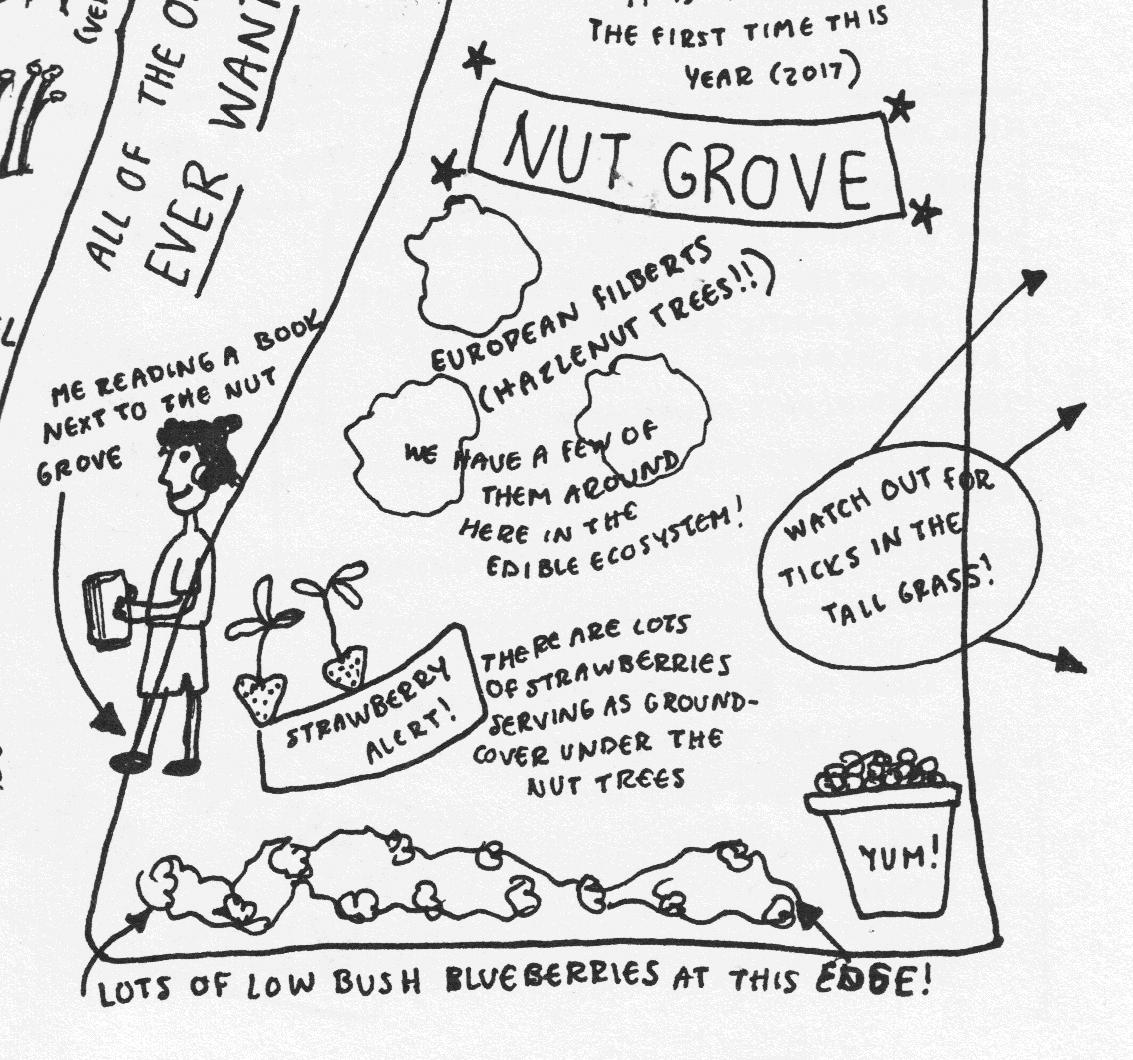 (VE
ALL OF THE O
EVER WANT
THE FIRST TIME THIS
YEAR (2017)
NUT GROVE
EUROPEAN FILBERTS
(HAZLENUT TREES!!)
WE HAVE A FEW OF
THEM AROUND
HERE IN THE
EDIBLE ECOSYSTEM!
ME READING A BOOK
NEXT TO THE NUT
GROVE
WATCH OUT FOR
TICKS IN THE
TALL GRASS!
STRAWBERRY
ALERT!
THERE ARE LOTS
OF STRAWBERRIES
SERVING AS GROUND-
COVER UNDER THE
NUT TREES
YUM!
LOTS OF LOW BUSH BLUEBERRIES AT THIS EDGE!